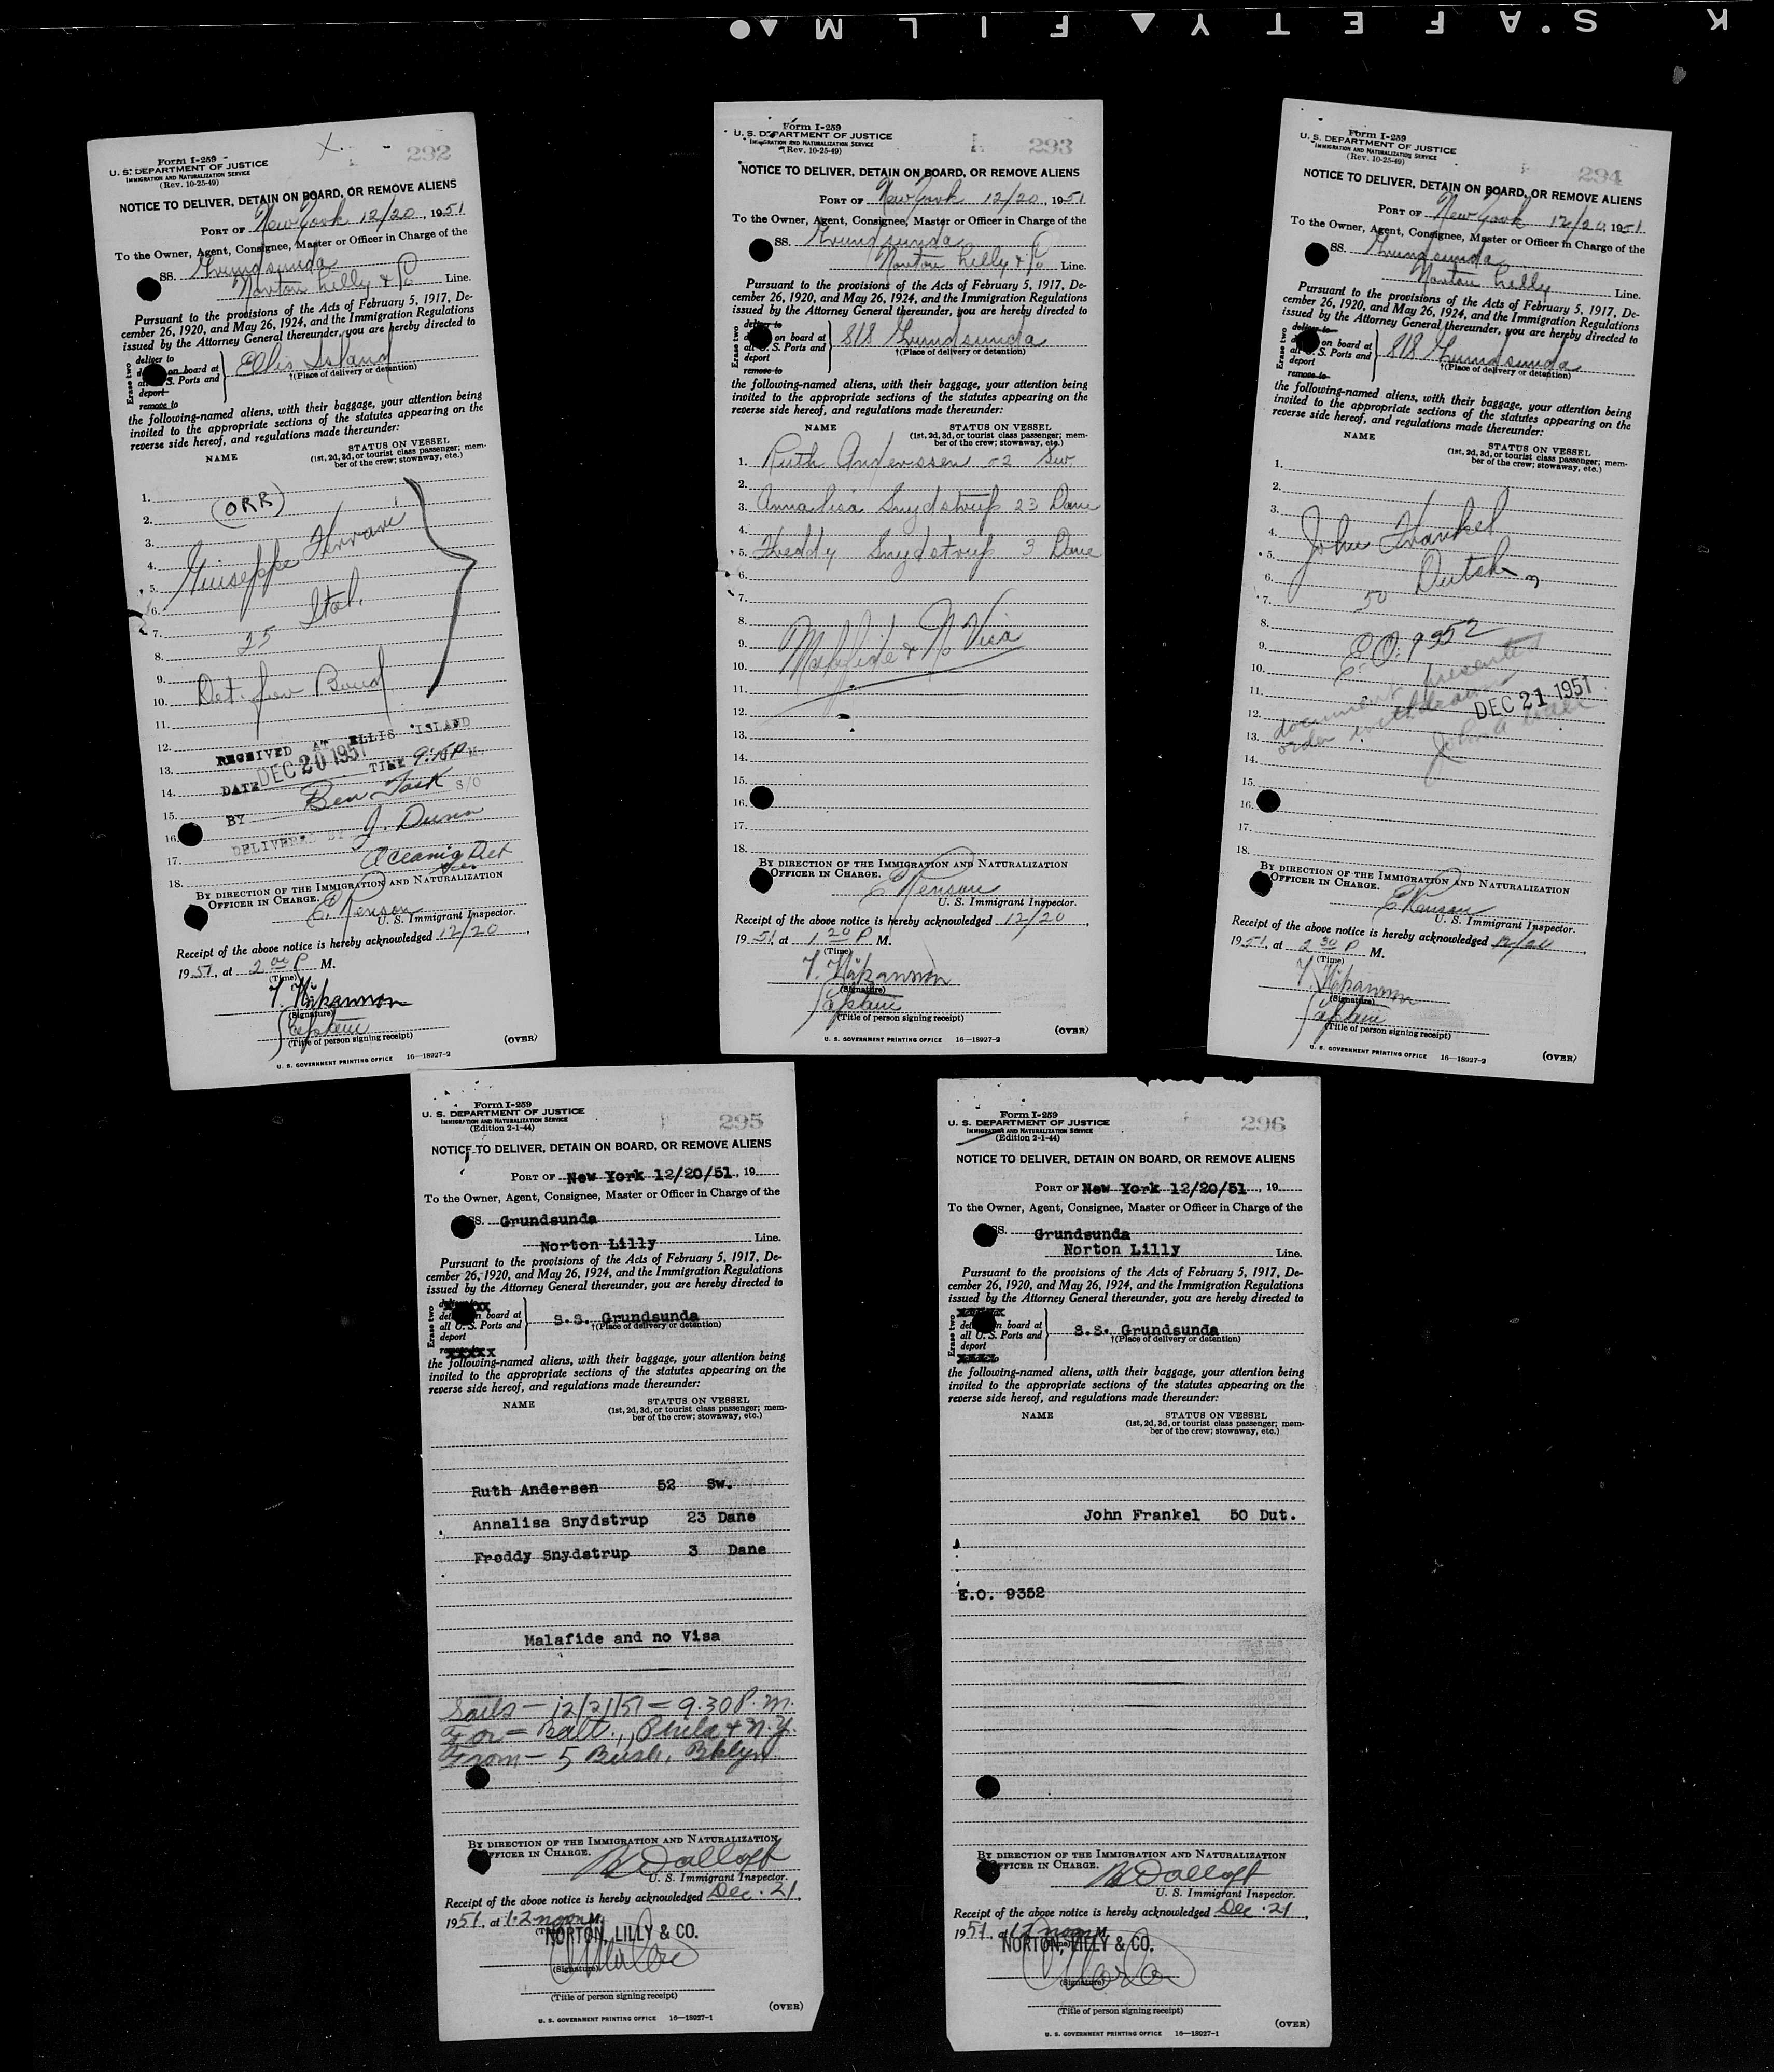 K S.AFETY FILM
Form I-259
U. S. DEPARTMENT OF JUSTICE
IMMIGRATION AND NATURALIZATION SERVICE
(Rev. 10-25-49)
292
NOTICE TO DELIVER, DETAIN ON BOARD, OR REMOVE ALIENS
PORT OF New York 12/20, 1951
To the Owner, Agent, Consignee, Master or Officer in Charge of the
SS. Grundsunda
Norton Lilly & Co Line.
Pursuant to the provisions of the Acts of February 5, 1917, De-
cember 26, 1920, and May 26, 1924, and the Immigration Regulations
issued by the Attorney General thereunder, you are hereby directed to
Erase two
deliver to
on board at
S. Ports and
deport
remove to
Ellis Island
†(Place of delivery or detention)
the following-named aliens, with their baggage, your attention being
invited to the appropriate sections of the statutes appearing on the
reverse side hereof, and regulations made thereunder:
NAME STATUS ON VESSEL
(1st, 2d, 3d, or tourist class passenger; mem-
ber of the crew; stowaway, etc.)
1.
2. (ORR)
3.
4. Guiseppe Ferrari
5.
6.
7. 25 Ital.
8.
9.
10. Det. for Board
11.
12. RECEIVED AT ELLIS ISLAND
13. DATE DEC 20 1951 TIME 9:15 P M.
14. Ben Task S/O
15. BY
16. DELIVERED BY J. Dunn
17. Oceanic Det
18.
BY DIRECTION OF THE IMMIGRATION AND NATURALIZATION
OFFICER IN CHARGE.
E. Renson
U. S. Immigrant Inspector.
Receipt of the above notice is hereby acknowledged 12/20,
1951, at 2 00 P M.
(Time)
(Signature)
Captain
(Title of person signing receipt)
(OVER)
U. S. GOVERNMENT PRINTING OFFICE 16—18927-2
Form I-259
U. S. DEPARTMENT OF JUSTICE
IMMIGRATION AND NATURALIZATION SERVICE
(Rev. 10-25-49)
293
NOTICE TO DELIVER, DETAIN ON BOARD, OR REMOVE ALIENS
PORT OF New York 12/20, 1951
To the Owner, Agent, Consignee, Master or Officer in Charge of the
SS. Grundsunda
Norton Lilly & Co Line.
Pursuant to the provisions of the Acts of February 5, 1917, De-
cember 26, 1920, and May 26, 1924, and the Immigration Regulations
issued by the Attorney General thereunder, you are hereby directed to
Erase two
deliver to
on board at
all U. S. Ports and
deport
remove to
818 Grundsunda
†(Place of delivery or detention)
the following-named aliens, with their baggage, your attention being
invited to the appropriate sections of the statutes appearing on the
reverse side hereof, and regulations made thereunder:
NAME STATUS ON VESSEL
(1st, 2d, 3d, or tourist class passenger; mem-
ber of the crew; stowaway, etc.)
1. Ruth Anderssen 52 Sw.
2.
3. Annalisa Snydstrup 23 Dane
4.
5. Freddy Snydstrup 3 Dane
6.
7.
8.
9. Malafide & No Visa
10.
11.
12.
13.
14.
15.
16.
17.
18.
BY DIRECTION OF THE IMMIGRATION AND NATURALIZATION
OFFICER IN CHARGE.
E Renson
U. S. Immigrant Inspector.
Receipt of the above notice is hereby acknowledged 12/20,
1951, at 1 20 P M.
(Time)
(Signature)
Captain
(Title of person signing receipt)
(OVER)
U. S. GOVERNMENT PRINTING OFFICE 16—18927-2
Form I-259
U. S. DEPARTMENT OF JUSTICE
IMMIGRATION AND NATURALIZATION SERVICE
(Rev. 10-25-49)
294
NOTICE TO DELIVER, DETAIN ON BOARD, OR REMOVE ALIENS
PORT OF New York 12/20, 1951
To the Owner, Agent, Consignee, Master or Officer in Charge of the
SS. Grundsunda
Norton Lilly Line.
Pursuant to the provisions of the Acts of February 5, 1917, De-
cember 26, 1920, and May 26, 1924, and the Immigration Regulations
issued by the Attorney General thereunder, you are hereby directed to
Erase two
deliver to
on board at
all U. S. Ports and
deport
remove to
818 Grundsunda
†(Place of delivery or detention)
the following-named aliens, with their baggage, your attention being
invited to the appropriate sections of the statutes appearing on the
reverse side hereof, and regulations made thereunder:
NAME STATUS ON VESSEL
(1st, 2d, 3d, or tourist class passenger; mem-
ber of the crew; stowaway, etc.)
1.
2.
3.
4. John Frankel
5.
6. Dutch
7. 50
8.
9. E.O. 9352
10.
11. document presented
12. order withdrawn DEC 21 1951
13.
14.
15.
16.
17.
18.
BY DIRECTION OF THE IMMIGRATION AND NATURALIZATION
OFFICER IN CHARGE.
E Renson
U. S. Immigrant Inspector.
Receipt of the above notice is hereby acknowledged 12/20
1951, at 2 30 P M.
(Time)
(Signature)
Captain
(Title of person signing receipt)
(OVER)
U. S. GOVERNMENT PRINTING OFFICE 16—18927-2
Form I-259
U. S. DEPARTMENT OF JUSTICE
IMMIGRATION AND NATURALIZATION SERVICE
(Edition 2-1-44)
295
NOTICE TO DELIVER, DETAIN ON BOARD, OR REMOVE ALIENS
PORT OF New York 12/20/51, 19
To the Owner, Agent, Consignee, Master or Officer in Charge of the
SS. Grundsunda
Norton Lilly Line.
Pursuant to the provisions of the Acts of February 5, 1917, De-
cember 26, 1920, and May 26, 1924, and the Immigration Regulations
issued by the Attorney General thereunder, you are hereby directed to
Erase two
on board at
all U. S. Ports and
deport
S.S. Grundsunda
†(Place of delivery or detention)
the following-named aliens, with their baggage, your attention being
invited to the appropriate sections of the statutes appearing on the
reverse side hereof, and regulations made thereunder:
NAME STATUS ON VESSEL
(1st, 2d, 3d, or tourist class passenger; mem-
ber of the crew; stowaway, etc.)
Ruth Andersen 52 Sw.
Annalisa Snydstrup 23 Dane
Freddy Snydstrup 3 Dane
Malafide and no Visa
Sails — 12/21/51 = 9.30 P.M.
For = Balt., Phila & N.Y.
From — 5 Bush, Bklyn
BY DIRECTION OF THE IMMIGRATION AND NATURALIZATION
OFFICER IN CHARGE.
U. S. Immigrant Inspector.
Receipt of the above notice is hereby acknowledged Dec. 21,
1951, at 12 noon M.
NORTON, LILLY & CO.
(Signature)
(Title of person signing receipt)
(OVER)
U. S. GOVERNMENT PRINTING OFFICE 16—18927-1
Form I-259
U. S. DEPARTMENT OF JUSTICE
IMMIGRATION AND NATURALIZATION SERVICE
(Edition 2-1-44)
296
NOTICE TO DELIVER, DETAIN ON BOARD, OR REMOVE ALIENS
PORT OF New York 12/20/51, 19
To the Owner, Agent, Consignee, Master or Officer in Charge of the
SS. Grundsunda
Norton Lilly Line.
Pursuant to the provisions of the Acts of February 5, 1917, De-
cember 26, 1920, and May 26, 1924, and the Immigration Regulations
issued by the Attorney General thereunder, you are hereby directed to
Erase two
on board at
all U. S. Ports and
deport
S.S. Grundsunda
†(Place of delivery or detention)
the following-named aliens, with their baggage, your attention being
invited to the appropriate sections of the statutes appearing on the
reverse side hereof, and regulations made thereunder:
NAME STATUS ON VESSEL
(1st, 2d, 3d, or tourist class passenger; mem-
ber of the crew; stowaway, etc.)
John Frankel 50 Dut.
E.O. 9352
BY DIRECTION OF THE IMMIGRATION AND NATURALIZATION
OFFICER IN CHARGE.
U. S. Immigrant Inspector.
Receipt of the above notice is hereby acknowledged Dec. 21,
1951, at 12 noon M.
NORTON, LILLY & CO.
(Signature)
(Title of person signing receipt)
(OVER)
U. S. GOVERNMENT PRINTING OFFICE 16—18927-1